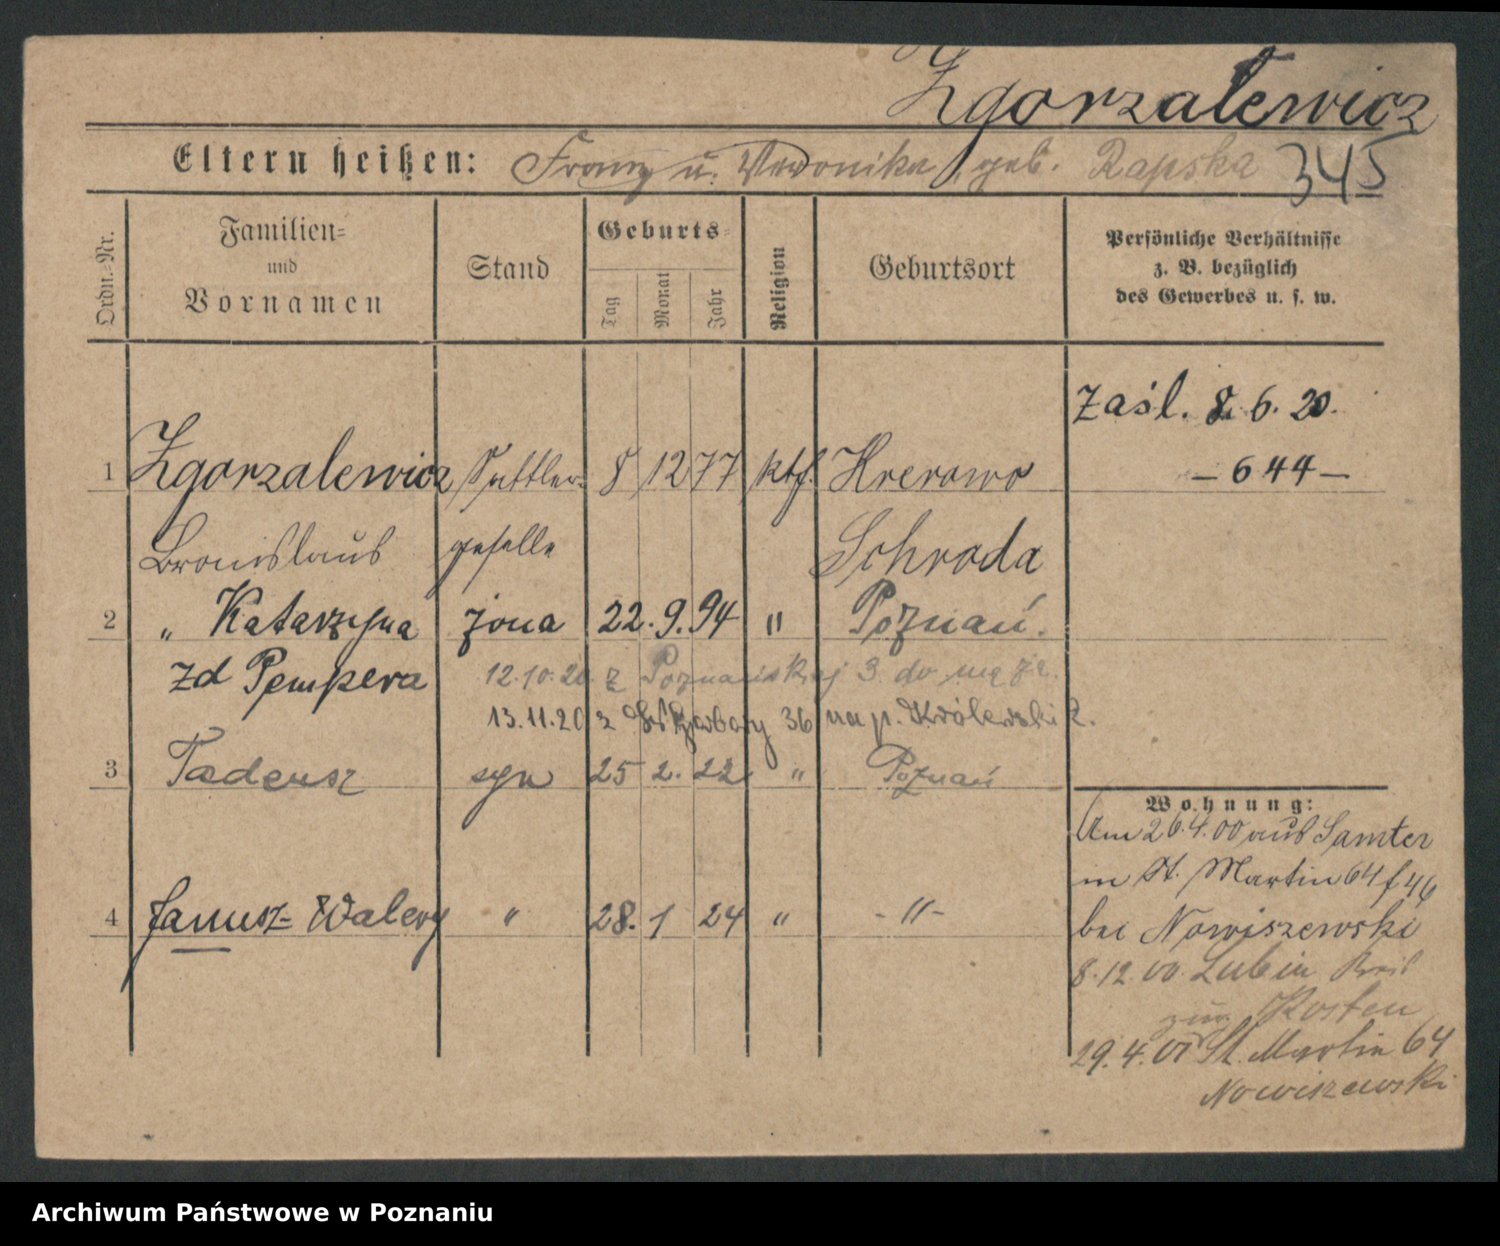 Zgorzalewicz
Eltern heißen: Franz u. Veronika, geb. Rapska 345
Ordn.-Nr.
Familien- und Vornamen
Stand
Geburts-
Tag Monat Jahr
Religion
Geburtsort
Persönliche Verhältnisse
z. B. bezüglich
des Gewerbes u. s. w.
zaśl. 8. 6. 20.
— 644 —
1 Zgorzalewicz Sattler- 8 12 77 ktf. Krerowo
Bronislaus geselle Schroda
2 " Katarzyna żona 22. 9. 94 " Poznań.
zd Pempera 12.10.20 z Poznańskiej 3 do męża.
13.11.20 z 36 na p. Królewski 2.
3 Tadeusz syn 25 2. 22 " Poznań
4 Janusz- Walery " 28. 1 24 " -"-
Wohnung:
Am 26.4.00 aus Samter
in St. Martin 64 f 46
bei Nowiszewski
8.12.00. Lubin Kreis
Kosten
29.4.01 St. Martin 64
Nowiszewski
Archiwum Państwowe w Poznaniu